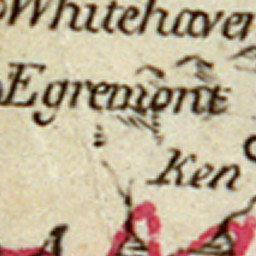 Whitehaven
Egremont
Ken